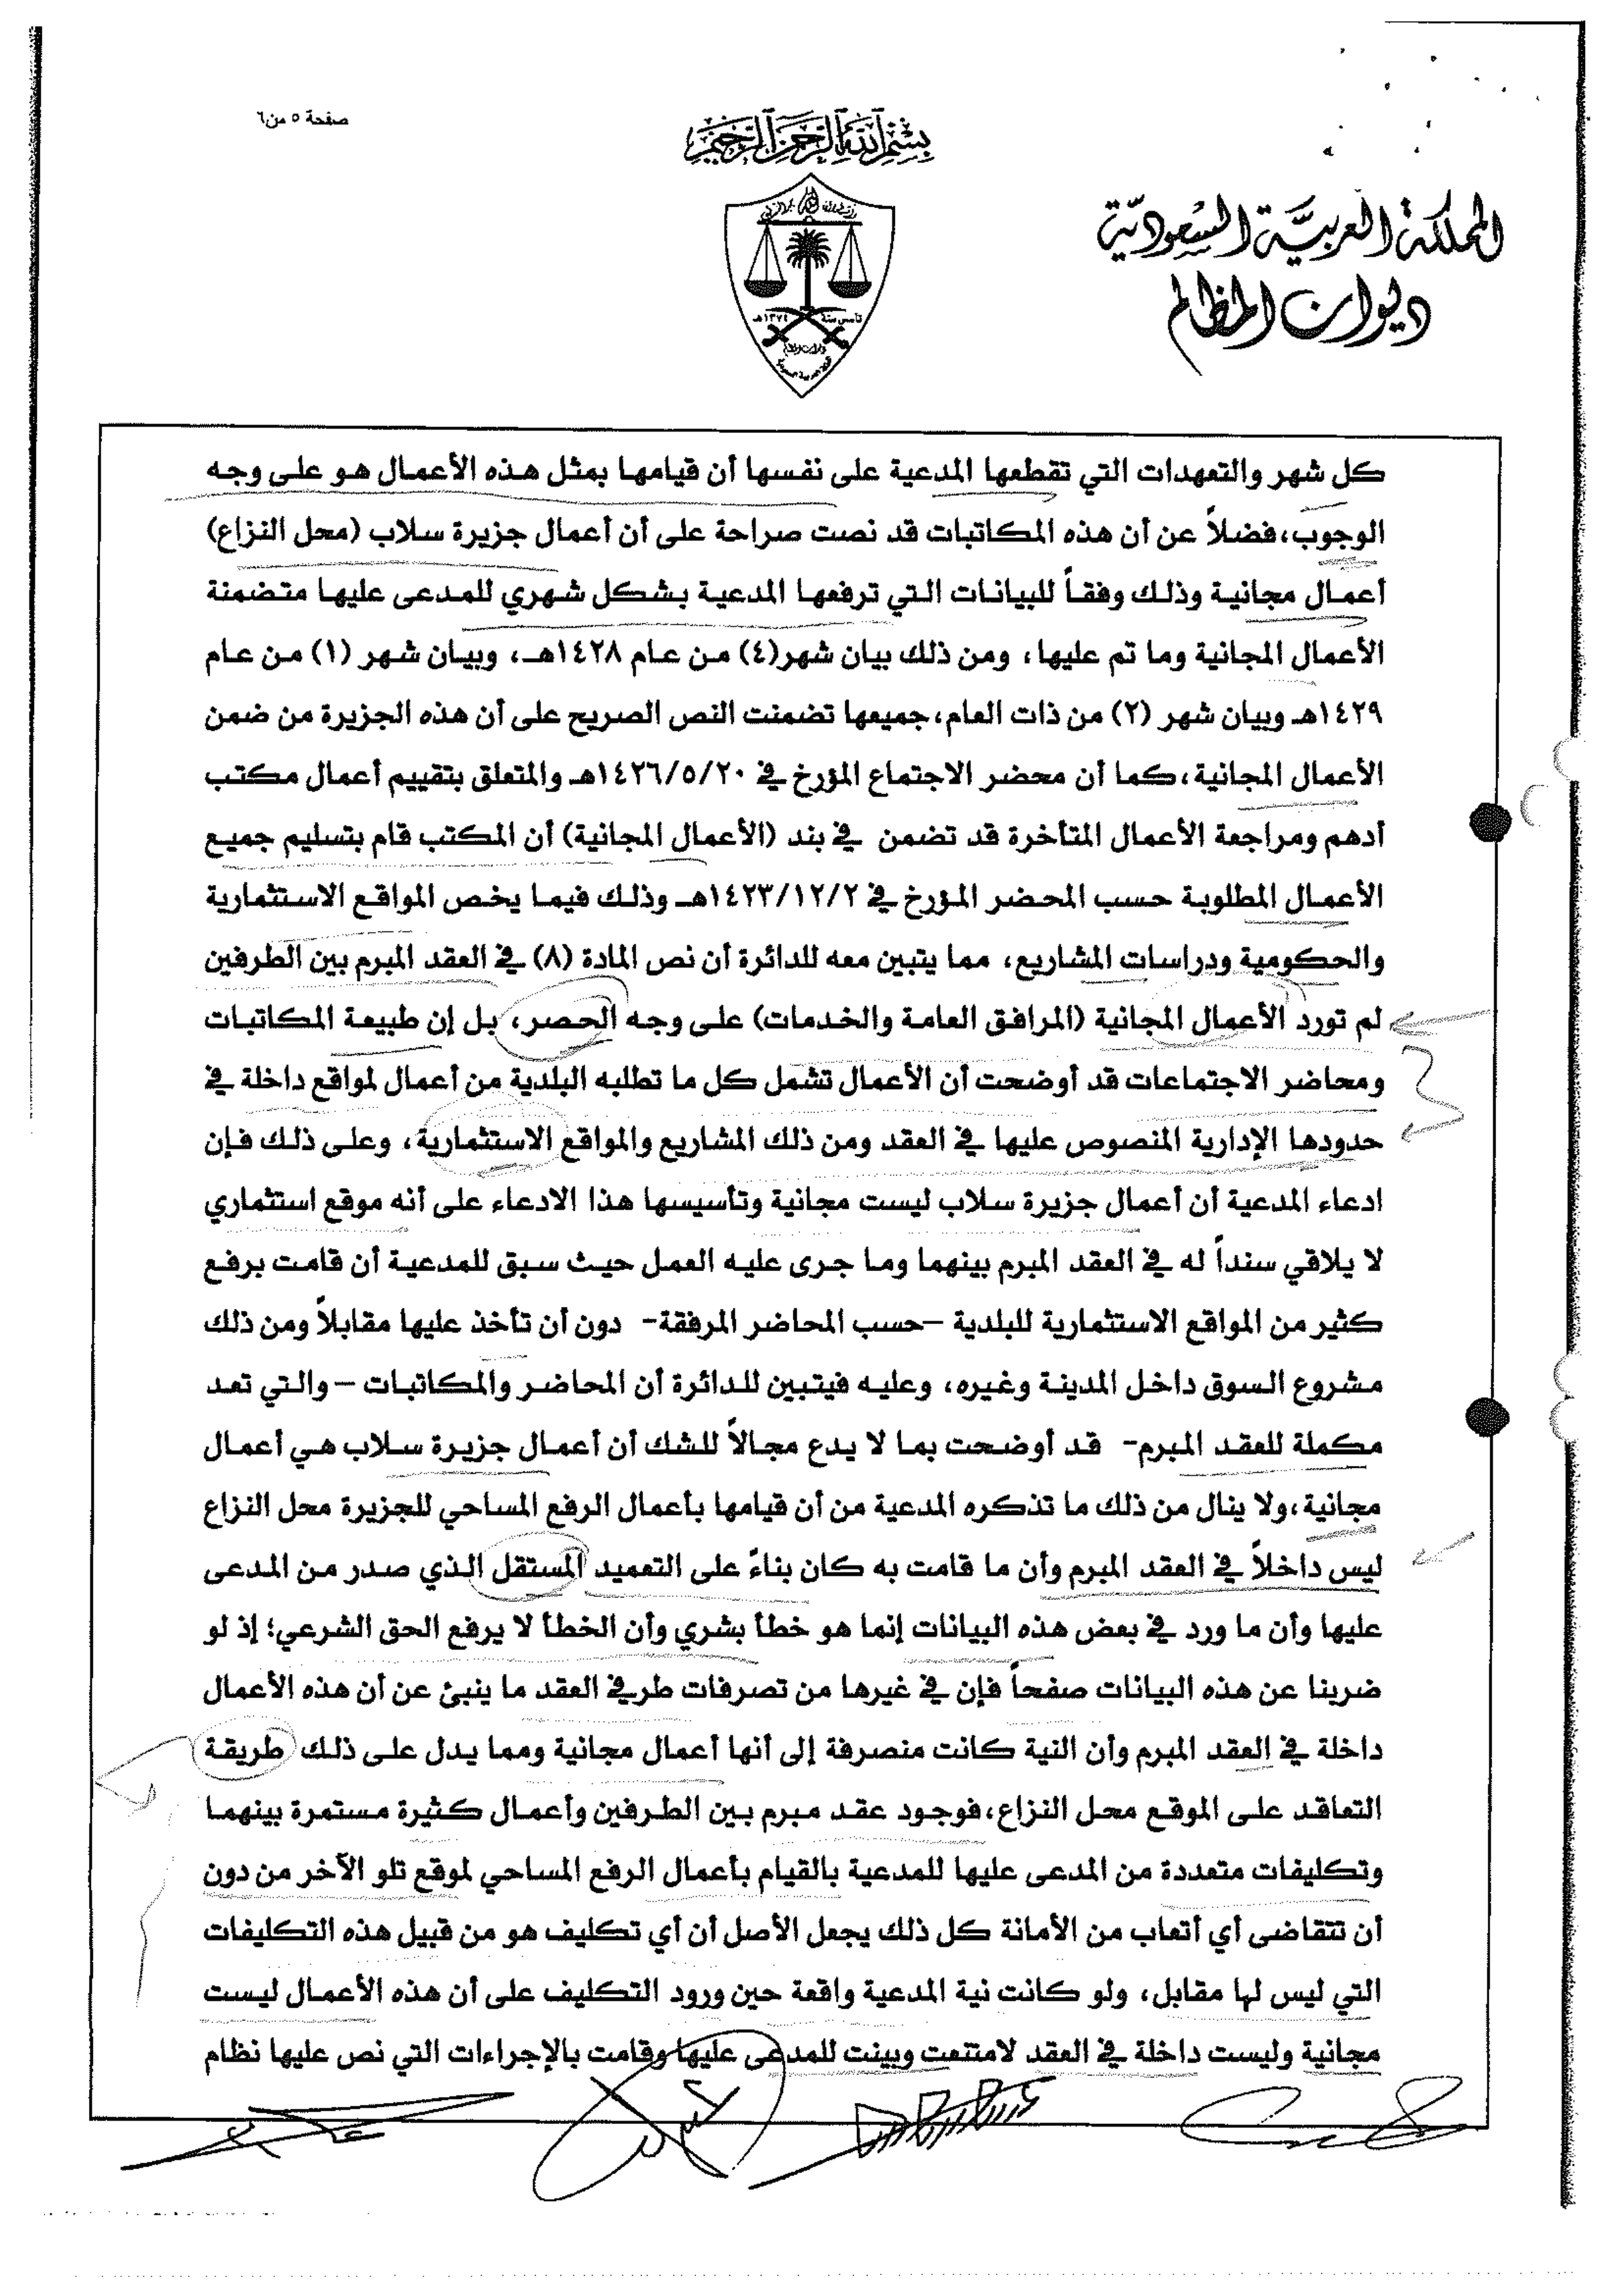 صفحة ٥ من٦
بسم الله الرحمن الرحيم
المملكة العربية السعودية
ديوان المظالم
تأسس سنة ١٣٧٤هـ
كل شهر والتعهدات التي تقطعها المدعية على نفسها أن قيامها بمثل هذه الأعمال هو على وجه
الوجوب،فضلاً عن أن هذه المكاتبات قد نصت صراحة على أن أعمال جزيرة سلاب (محل النزاع)
أعمال مجانية وذلك وفقاً للبيانات التي ترفعها المدعية بشكل شهري للمدعى عليها متضمنة
الأعمال المجانية وما تم عليها، ومن ذلك بيان شهر(٤) من عام ١٤٢٨هـ، وبيان شهر (١) من عام
١٤٢٩هـ وبيان شهر (٢) من ذات العام،جميعها تضمنت النص الصريح على أن هذه الجزيرة من ضمن
الأعمال المجانية،كما أن محضر الاجتماع المؤرخ في ١٤٢٦/٥/٢٠هـ والمتعلق بتقييم أعمال مكتب
أدهم ومراجعة الأعمال المتأخرة قد تضمن في بند (الأعمال المجانية) أن المكتب قام بتسليم جميع
الأعمال المطلوبة حسب المحضر المؤرخ في ١٤٢٣/١٢/٢هـ وذلك فيما يخص المواقع الاستثمارية
والحكومية ودراسات المشاريع، مما يتبين معه للدائرة أن نص المادة (٨) في العقد المبرم بين الطرفين
لم تورد الأعمال المجانية (المرافق العامة والخدمات) على وجه الحصر، بل إن طبيعة المكاتبات
ومحاضر الاجتماعات قد أوضحت أن الأعمال تشمل كل ما تطلبه البلدية من أعمال لمواقع داخلة في
حدودها الإدارية المنصوص عليها في العقد ومن ذلك المشاريع والمواقع الاستثمارية، وعلى ذلك فإن
ادعاء المدعية أن أعمال جزيرة سلاب ليست مجانية وتأسيسها هذا الادعاء على أنه موقع استثماري
لا يلاقي سنداً له في العقد المبرم بينهما وما جرى عليه العمل حيث سبق للمدعية أن قامت برفع
كثير من المواقع الاستثمارية للبلدية –حسب المحاضر المرفقة- دون أن تأخذ عليها مقابلاً ومن ذلك
مشروع السوق داخل المدينة وغيره، وعليه فيتبين للدائرة أن المحاضر والمكاتبات –والتي تعد
مكملة للعقد المبرم- قد أوضحت بما لا يدع مجالاً للشك أن أعمال جزيرة سلاب هي أعمال
مجانية،ولا ينال من ذلك ما تذكره المدعية من أن قيامها بأعمال الرفع المساحي للجزيرة محل النزاع
ليس داخلاً في العقد المبرم وأن ما قامت به كان بناءً على التعميد المستقل الذي صدر من المدعى
عليها وأن ما ورد في بعض هذه البيانات إنما هو خطأ بشري وأن الخطأ لا يرفع الحق الشرعي؛ إذ لو
ضربنا عن هذه البيانات صفحاً فإن في غيرها من تصرفات طرفي العقد ما ينبئ عن أن هذه الأعمال
داخلة في العقد المبرم وأن النية كانت منصرفة إلى أنها أعمال مجانية ومما يدل على ذلك طريقة
التعاقد على الموقع محل النزاع،فوجود عقد مبرم بين الطرفين وأعمال كثيرة مستمرة بينهما
وتكليفات متعددة من المدعى عليها للمدعية بالقيام بأعمال الرفع المساحي لموقع تلو الآخر من دون
أن تتقاضى أي أتعاب من الأمانة كل ذلك يجعل الأصل أن أي تكليف هو من قبيل هذه التكليفات
التي ليس لها مقابل، ولو كانت نية المدعية واقعة حين ورود التكليف على أن هذه الأعمال ليست
مجانية وليست داخلة في العقد لامتنعت وبينت للمدعى عليها وقامت بالإجراءات التي نص عليها نظام